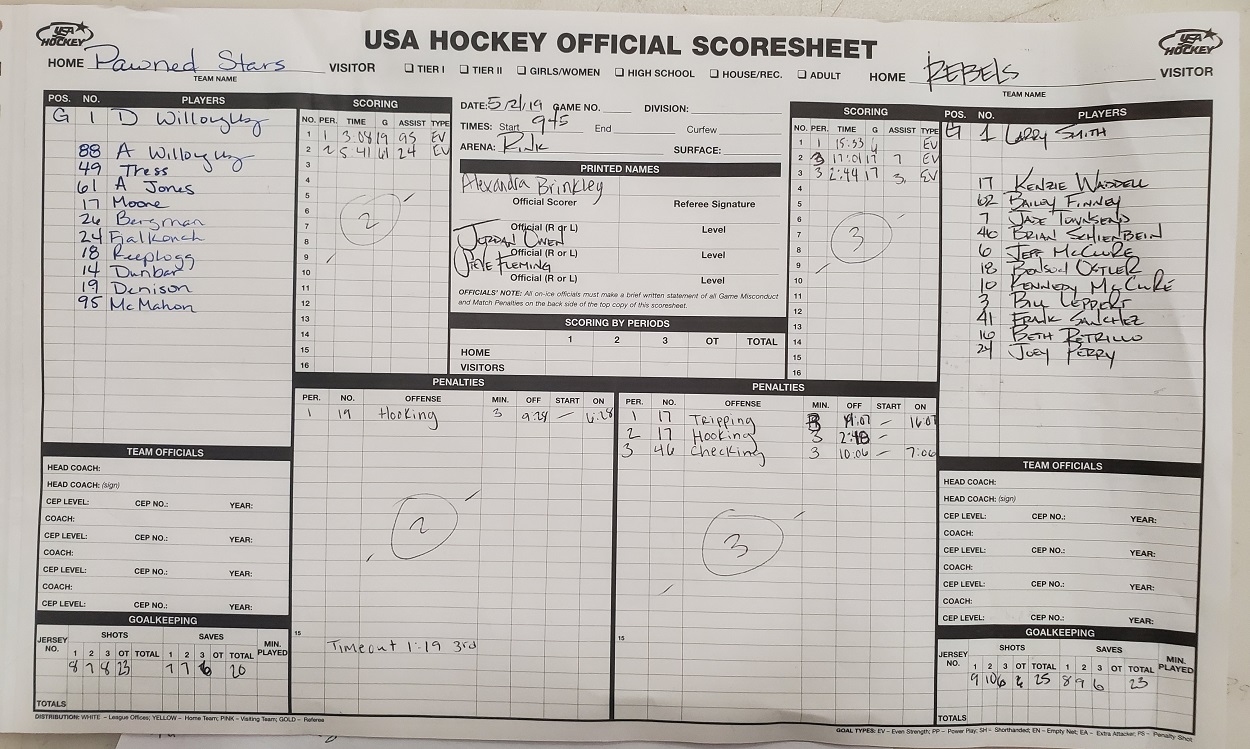 USA HOCKEY
USA HOCKEY OFFICIAL SCORESHEET
USA HOCKEY
HOME Pawned Stars VISITOR
TEAM NAME
☐ TIER I ☐ TIER II ☐ GIRLS/WOMEN ☐ HIGH SCHOOL ☐ HOUSE/REC. ☐ ADULT
HOME REBELS VISITOR
TEAM NAME
POS. NO. PLAYERS
G 1 D Willoughby
88 A Willoughby
49 Tress
61 A Jones
17 Moore
26 Bergman
24 Fialkovich
18 Reeplogg
14 Dunbar
19 Denison
95 McMahon
SCORING
NO. PER. TIME G ASSIST TYPE
1 1 3:08 19 95 EV
2 2 5:41 61 24 EV
3
4
5
6
7
8
9
10
11
12
13
14
15
16
2
DATE: 5/2/19 GAME NO. DIVISION:
TIMES: Start 945 End Curfew
ARENA: Rink SURFACE:
PRINTED NAMES
Alexandra Brinkley
Official Scorer Referee Signature
Official (R or L) Level
Jordan Owen
Official (R or L) Level
Steve Fleming
Official (R or L) Level
OFFICIALS' NOTE: All on-ice officials must make a brief written statement of all Game Misconduct
and Match Penalties on the back side of the top copy of this scoresheet.
SCORING BY PERIODS
1 2 3 OT TOTAL
HOME
VISITORS
SCORING
NO. PER. TIME G ASSIST TYPE
1 1 15:53 EV
2 3 17:01 17 7 EV
3 3 2:44 17 3 EV
4
5
6
7
8
9
10
11
12
13
14
15
16
3
POS. NO. PLAYERS
G 1 Larry Smith
17 Kenzie Waddell
62 Bailey Finney
7 Jade Townsend
46 Brian Schienbein
6 Jeff McClure
18 Ostler
10 Kennedy McClure
3 Bill Leppert
41 Frank Sanchez
16 Beth Petrillo
24 Joey Perry
PENALTIES
PER. NO. OFFENSE MIN. OFF START ON
1 19 Hooking 3 9:28 – 6:28
2
15
Timeout 1:19 3rd
PENALTIES
PER. NO. OFFENSE MIN. OFF START ON
1 17 Tripping 3 19:07 – 16:07
2 17 Hooking 3 –
3 46 Checking 3 10:06 – 7:06
3
15
TEAM OFFICIALS
HEAD COACH:
HEAD COACH: (sign)
CEP LEVEL: CEP NO.: YEAR:
COACH:
CEP LEVEL: CEP NO.: YEAR:
COACH:
CEP LEVEL: CEP NO.: YEAR:
COACH:
CEP LEVEL: CEP NO.: YEAR:
GOALKEEPING
SHOTS SAVES
JERSEY NO. 1 2 3 OT TOTAL 1 2 3 OT TOTAL MIN. PLAYED
8 7 8 23 7 7 6 20
TOTALS
TEAM OFFICIALS
HEAD COACH:
HEAD COACH: (sign)
CEP LEVEL: CEP NO.: YEAR:
COACH:
CEP LEVEL: CEP NO.: YEAR:
COACH:
CEP LEVEL: CEP NO.: YEAR:
COACH:
CEP LEVEL: CEP NO.: YEAR:
GOALKEEPING
SHOTS SAVES
JERSEY NO. 1 2 3 OT TOTAL 1 2 3 OT TOTAL MIN. PLAYED
9 10 6 25 8 9 6 23
TOTALS
DISTRIBUTION: WHITE – League Offices; YELLOW – Home Team; PINK – Visiting Team; GOLD – Referee
GOAL TYPES: EV – Even Strength; PP – Power Play; SH – Shorthanded; EN – Empty Net; EA – Extra Attacker; PS – Penalty Shot